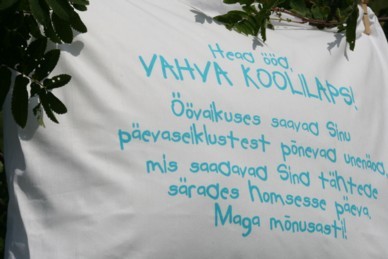 Head ööd,
VAHVA KOOLILAPS!
Öövaikuses saavad Sinu
päevaseiklustest põnevad unenäod,
mis saadavad Sind tähtede
särades homsesse päeva.
Maga mõnusasti!